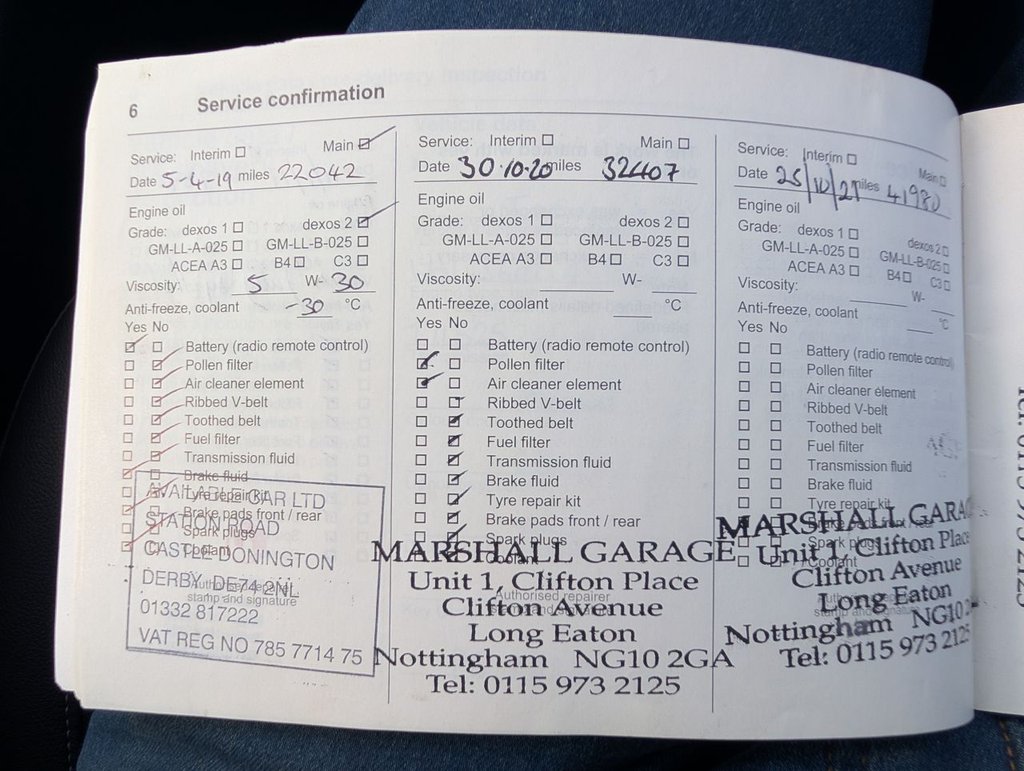 6 Service confirmation
Service: Interim Main
Date 5-4-19 miles 22042
Engine oil
Grade: dexos 1 dexos 2
GM-LL-A-025 GM-LL-B-025
ACEA A3 B4 C3
Viscosity: 5 W- 30
Anti-freeze, coolant -30 °C
Yes No
Battery (radio remote control)
Pollen filter
Air cleaner element
Ribbed V-belt
Toothed belt
Fuel filter
Transmission fluid
Brake fluid
Tyre repair kit
Brake pads front / rear
Spark plugs
Coolant
Authorised repairer
stamp and signature
AVAILABLE CAR LTD
STATION ROAD
CASTLE DONINGTON
DERBY, DE74 2NL
01332 817222
VAT REG NO 785 7714 75
Service: Interim Main
Date 30·10·20 miles 32407
Engine oil
Grade: dexos 1 dexos 2
GM-LL-A-025 GM-LL-B-025
ACEA A3 B4 C3
Viscosity: W-
Anti-freeze, coolant °C
Yes No
Battery (radio remote control)
Pollen filter
Air cleaner element
Ribbed V-belt
Toothed belt
Fuel filter
Transmission fluid
Brake fluid
Tyre repair kit
Brake pads front / rear
Spark plugs
Coolant
Authorised repairer
stamp and signature
MARSHALL GARAGE
Unit 1, Clifton Place
Clifton Avenue
Long Eaton
Nottingham NG10 2GA
Tel: 0115 973 2125
Service: Interim Main
Date 25/10/21 miles 41980
Engine oil
Grade: dexos 1 dexos 2
GM-LL-A-025 GM-LL-B-025
ACEA A3 B4 C3
Viscosity: W-
Anti-freeze, coolant °C
Yes No
Battery (radio remote control)
Pollen filter
Air cleaner element
Ribbed V-belt
Toothed belt
Fuel filter
Transmission fluid
Brake fluid
Tyre repair kit
Spark plugs
Coolant
MARSHALL GARA
Unit 1, Clifton Place
Clifton Avenue
Long Eaton
Nottingham NG10 2
Tel: 0115 973 2125